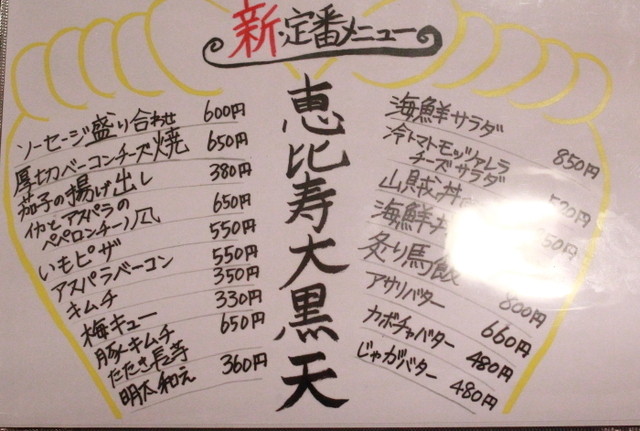 新・定番メニュー
恵比寿大黒天
ソーセージ盛り合わせ 600円
厚切ベーコンチーズ焼 650円
茄子の揚げ出し 380円
イカとアスパラの
ペペロンチーノ風 650円
いもピザ 550円
アスパラベーコン 550円
キムチ 350円
梅キュー 330円
豚キムチ 650円
たたき長芋
明太和え 360円
海鮮サラダ 850円
冷トマトモッツァレラ
チーズサラダ
山賊丼
海鮮丼 50円
炙り馬飯 800円
アサリバター 660円
カボチャバター 480円
じゃがバター 480円